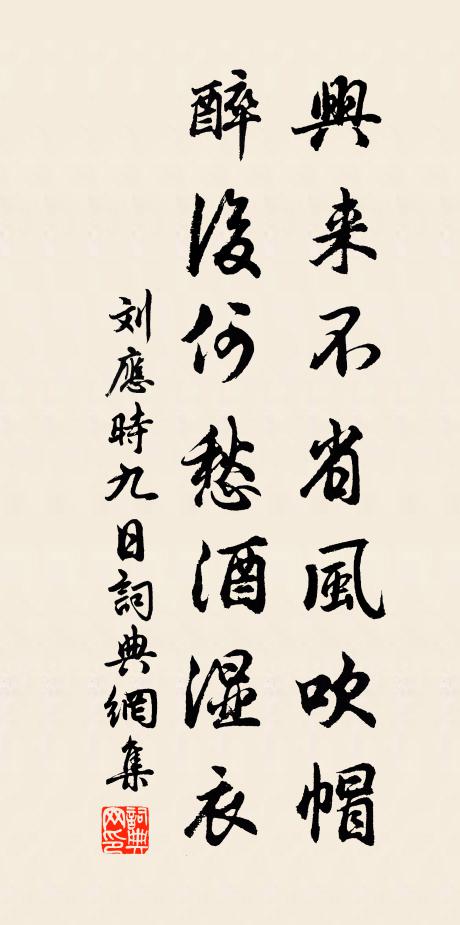 興来不省風吹帽
醉後何愁酒湿衣
刘應時九日詞典網集
詞典
网印